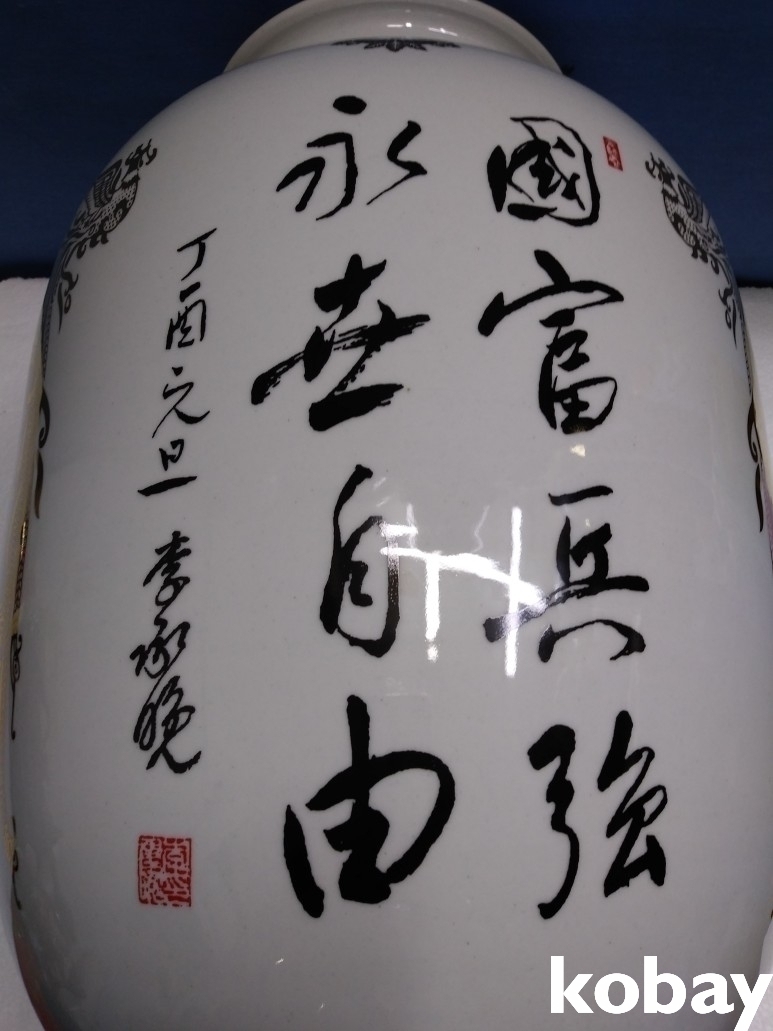 國富兵強
永世自由
丁酉元旦 李承晩
kobay